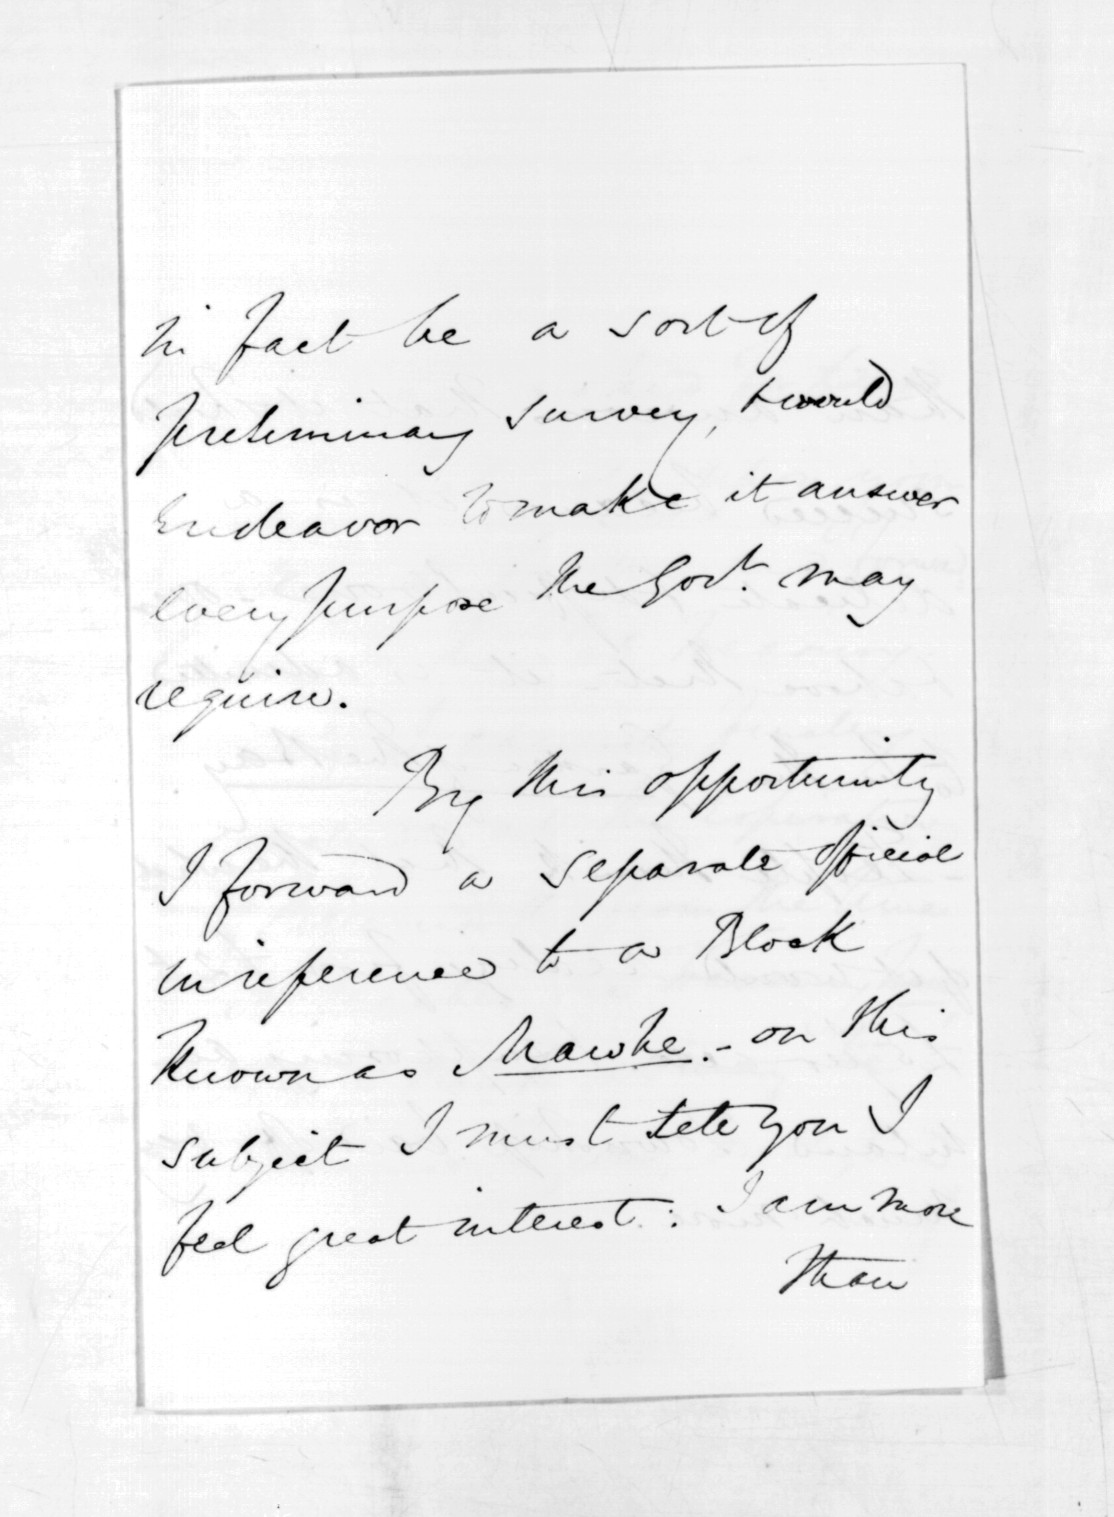 in fact be a sort of
preliminary survey, & would
endeavor to make it answer
every purpose the Govt. may
require.
By this opportunity
I forward a separate official
in reference to a Block
Known as Mawhe. - on this
subject I must tell you I
feel great interest: I am more
than